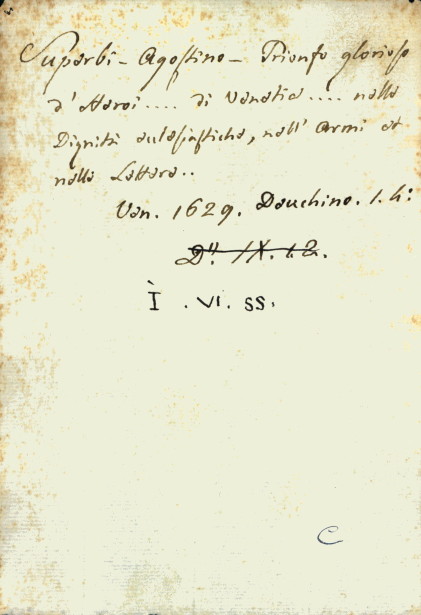 Superbi - Agostino - Trionfo glorioso
d'Heroi.... di Venetia.... nelle
Dignità eclesiastiche, nell' Armi et
nelle Lettere..
Ven. 1629. Deuchino. 1. 4:
D.. IX. 12.
I . VI. SS.
C